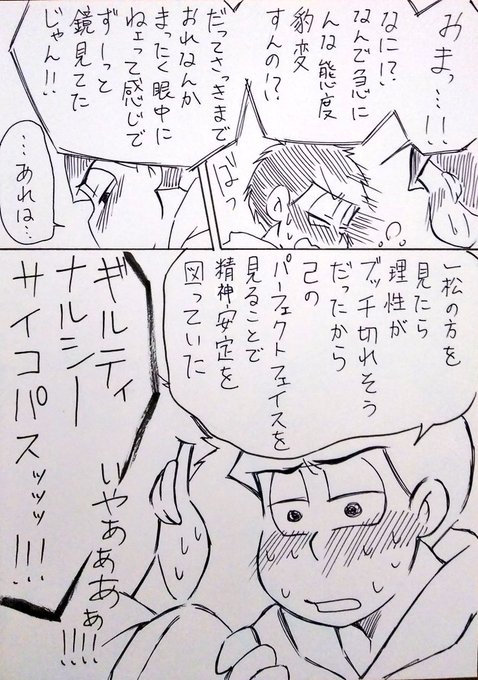 おまっ…!!
なに!?
なんで急に
んな態度
豹変
すんの!?
だってさっきまで
おれなんか
まったく眼中に
ねェって感じで
ずーっと
鏡見てた
じゃん!!
ばっ
…あれは…
一松の方を
見たら
理性が
ブッチ切れそう
だったから
己の
パーフェクトフェイスを
見ることで
精神安定を
図っていた
ギルティ
ナルシー
サイコパスッッッ!!!
いやぁぁぁぁ!!!!